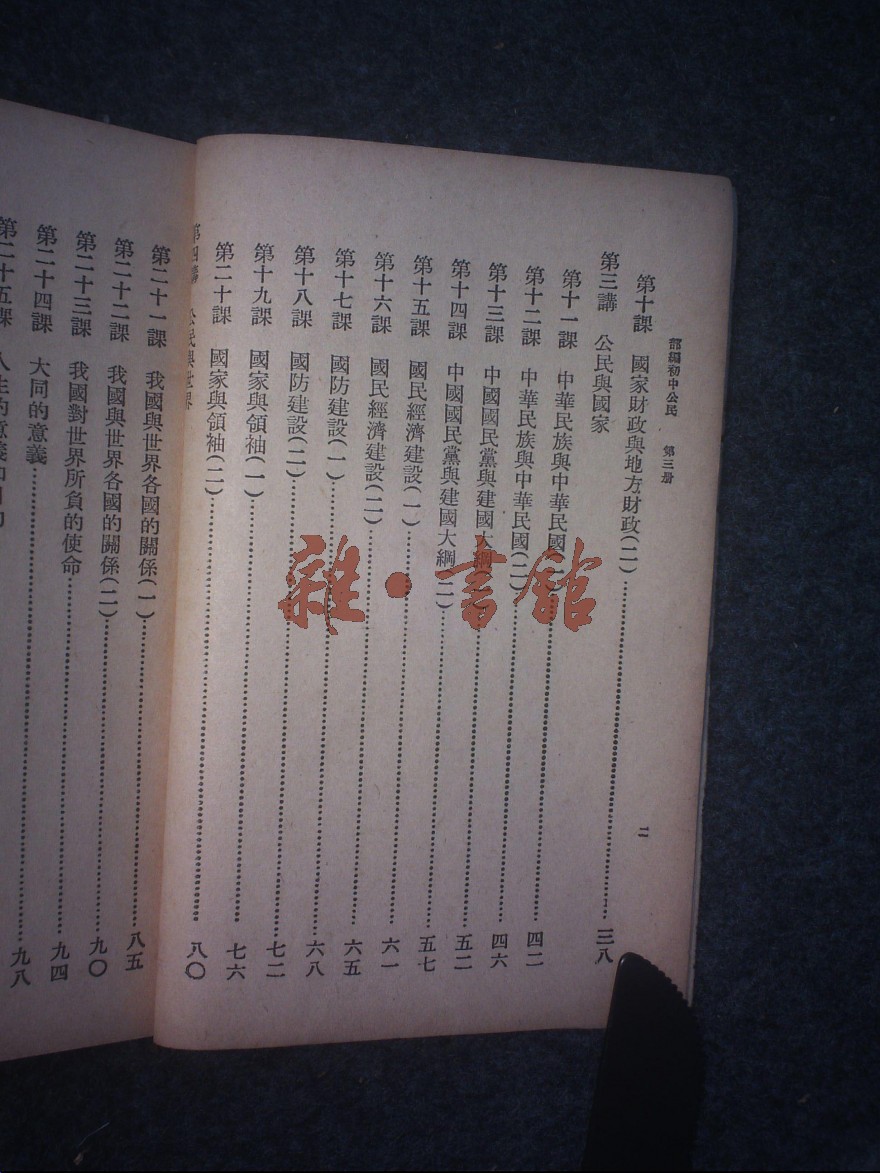 部編初中公民　第三册
二
第十課　國家財政與地方財政(二)……三八
第三講　公民與國家
第十一課　中華民族與中華民國……四二
第十二課　中華民族與中華民國(二)……四六
第十三課　中國國民黨與建國大綱……五二
第十四課　中國國民黨與建國大綱(二)……五七
第十五課　國民經濟建設(一)……六一
第十六課　國民經濟建設(二)……六五
第十七課　國防建設(一)……六八
第十八課　國防建設(二)……七二
第十九課　國家與領袖(一)……七六
第二十課　國家與領袖(二)……八〇
第四講　公民與世界
第二十一課　我國與世界各國的關係(一)……八五
第二十二課　我國與世界各國的關係(二)……九〇
第二十三課　我國對世界所負的使命……九四
第二十四課　大同的意義……九八
第二十五課　人生的意義和目的
雜·書館